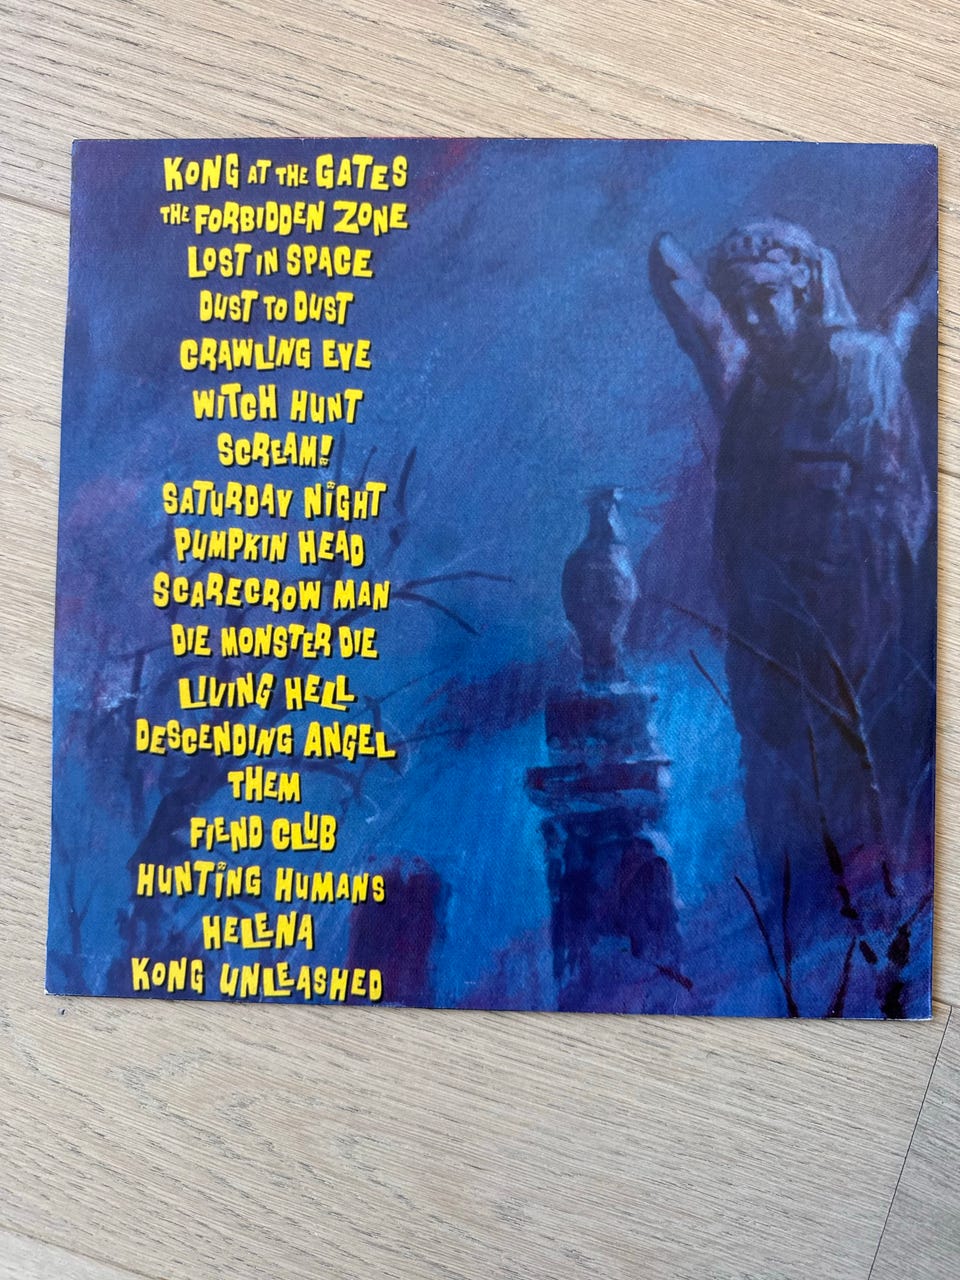 KONG AT THE GATES
THE FORBIDDEN ZONE
LOST IN SPACE
DUST TO DUST
CRAWLING EYE
WITCH HUNT
SCREAM!
SATURDAY NIGHT
PUMPKIN HEAD
SCARECROW MAN
DIE MONSTER DIE
LIVING HELL
DESCENDING ANGEL
THEM
FIEND CLUB
HUNTING HUMANS
HELENA
KONG UNLEASHED